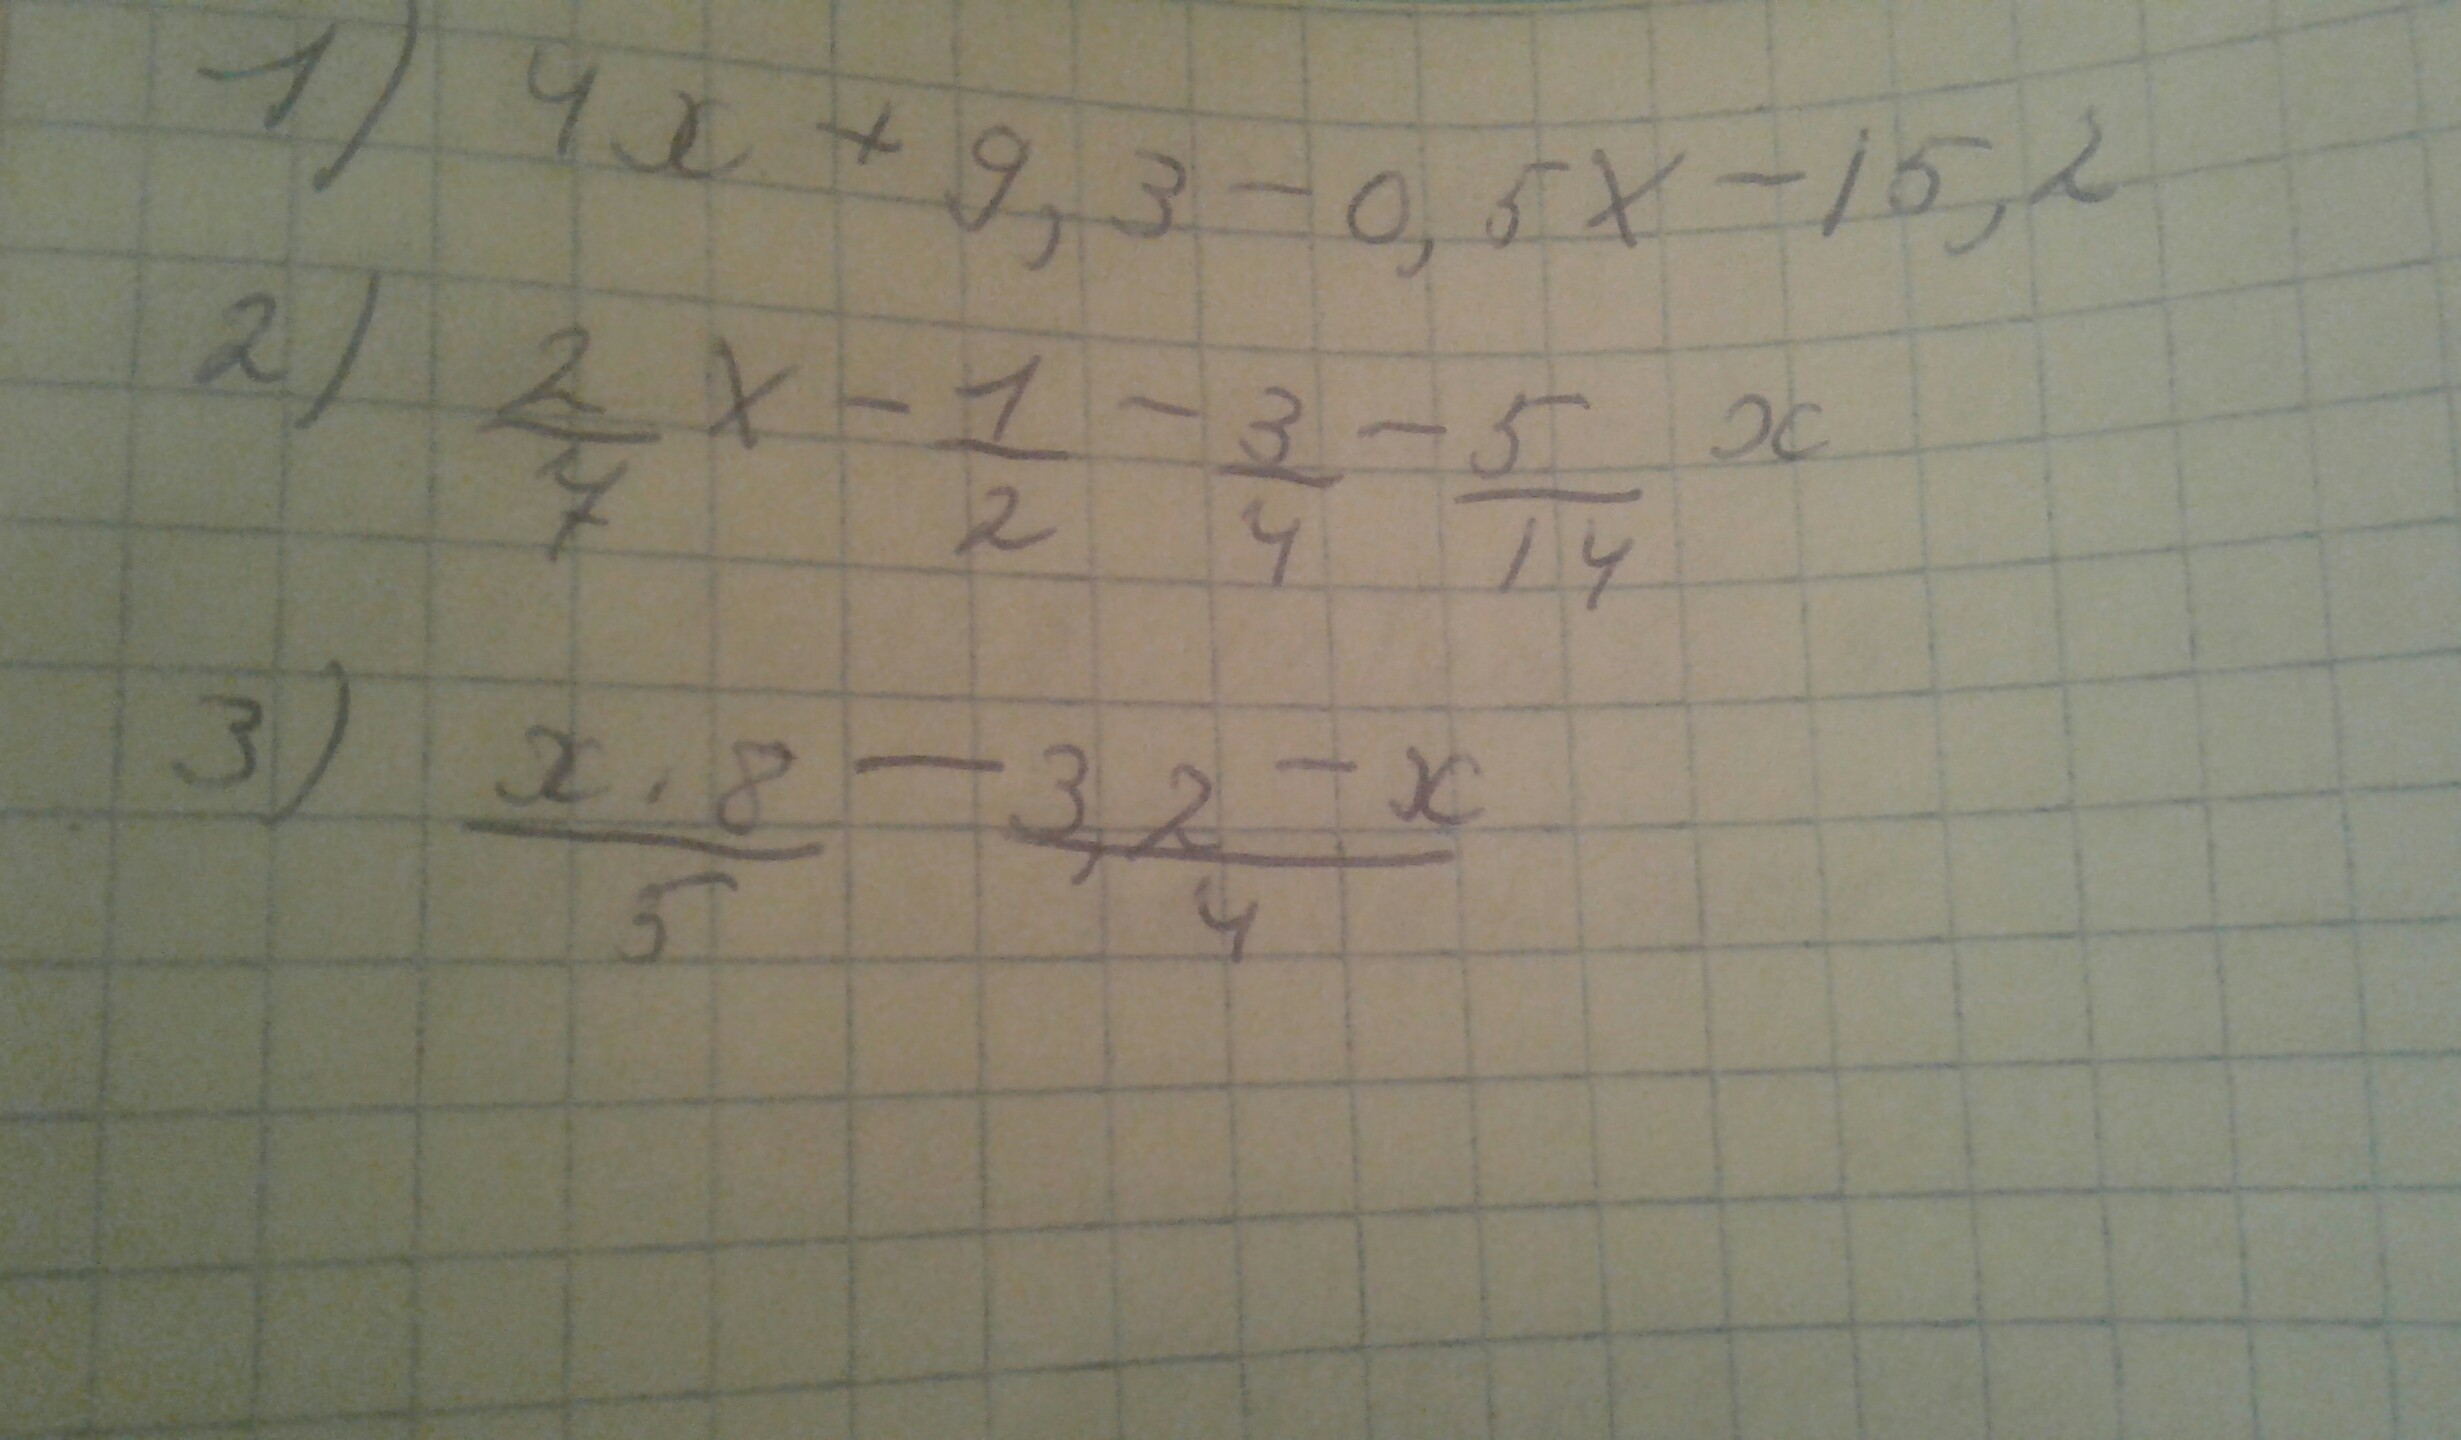 1) 4x + 9,3 - 0,5x - 15,2
2) 2/7 x - 1/2 - 3/4 - 5/14 x
3) x · 8 / 5 - 3,2 - x / 4